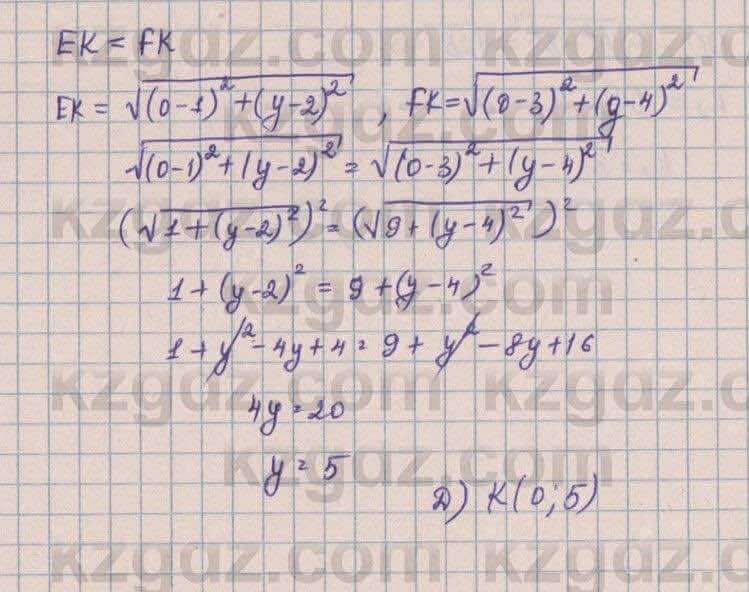 EK = FK
EK = √((0-1)² + (y-2)²) , FK = √((0-3)² + (y-4)²)
√((0-1)² + (y-2)²) = √((0-3)² + (y-4)²)
(√(1 + (y-2)²))² = (√(9 + (y-4)²))²
1 + (y-2)² = 9 + (y-4)²
1 + y² - 4y + 4 = 9 + y² - 8y + 16
4y = 20
y = 5
Д) K(0; 5)
kzgdz.com
kzgdz.com
kzgdz.com
kzgdz.com
kzgdz.com
kzgdz.com
kzgdz.com